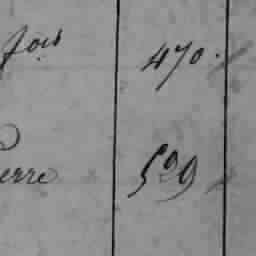 fois 470.
erre 509